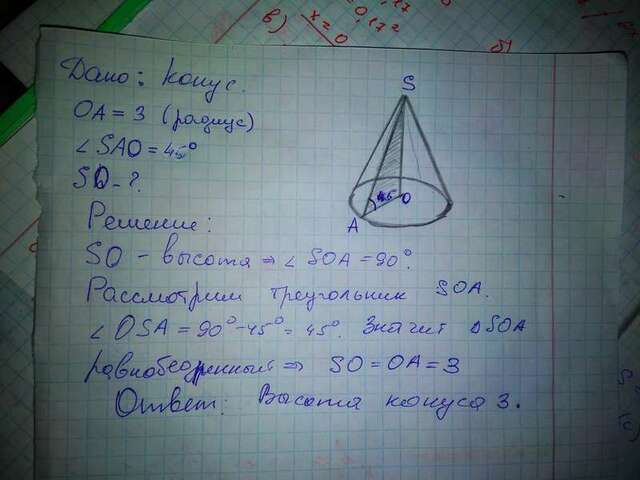 в) x=0
0,17=
б)
Дано: конус.
S
OA = 3 (радиус)
∠SAO = 45°
SO - ?
45 O
A
Решение:
SO - высота ⇒ ∠SOA = 90°.
Рассмотрим треугольник SOA.
∠OSA = 90° - 45° = 45°. Значит ΔSOA
равнобедренный ⇒ SO = OA = 3
Ответ: Высота конуса 3.